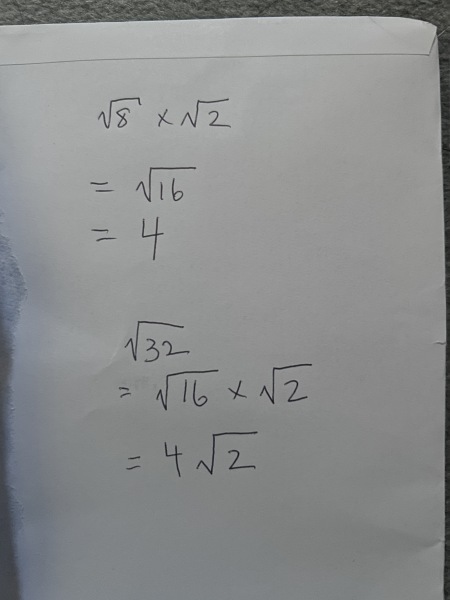 √8 × √2
= √16
= 4
√32
= √16 × √2
= 4√2